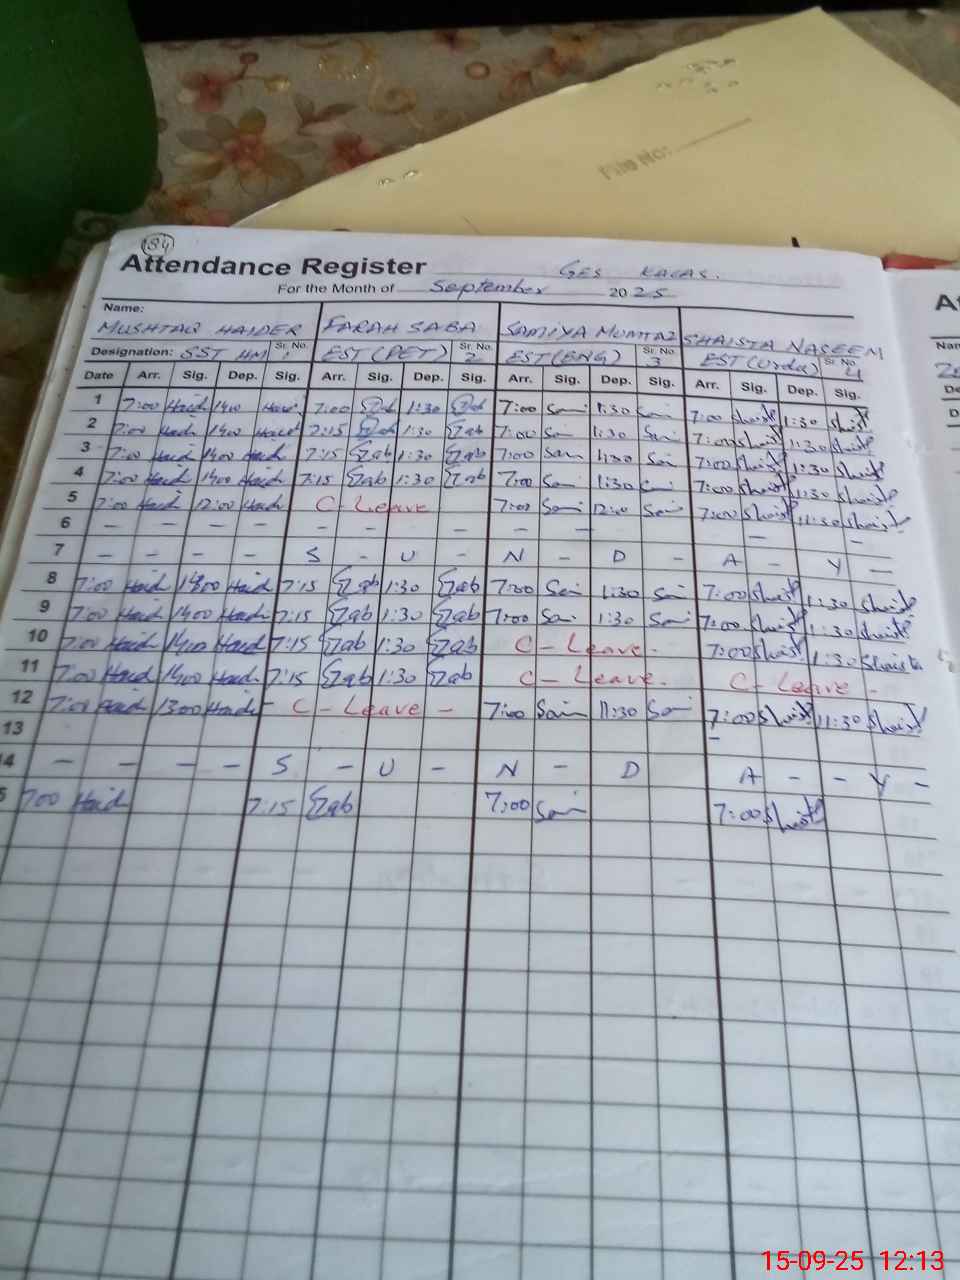 84
File No:
Attendance Register GES KACAS.
For the Month of September 2025
Name:
MUSHTAQ HAIDER FARAH SABA SAMIYA MUMTAZ SHAISTA NASEEM
Designation: SST HM Sr. No. 1 EST (PET) Sr. No. 2 EST (ENG) Sr. No. 3 EST (Urdu) Sr. No. 4
Date Arr. Sig. Dep. Sig. Arr. Sig. Dep. Sig. Arr. Sig. Dep. Sig. Arr. Sig. Dep. Sig.
1 7:00 Haid 1400 Haid 7:00 1:30 7:00 Sam 1:30 Sam 7:00 Shaist 1:30 Shaist
2 7:00 Haid 1400 Haid 7:15 1:30 Σab 7:00 Sam 1:30 Sam 7:00 Shaist 1:30 Shaist
3 7:00 Haid 1400 Haid 7:15 Σab 1:30 Σab 7:00 Sam 1:30 Sam 7:00 Shaist 1:30 Shaist
4 7:00 Haid 1400 Haid 7:15 Σab 1:30 Σab 7:00 Sam 1:30 Sam 7:00 Shaist 11:30 Shaist
5 7:00 Haid 12:00 Haid C-Leave 7:00 Sam Sam 7:00 Shaist 11:30 Shaist
6 – – – – – – – – – – – –
7 – – – – S – U – N – D – A – Y –
8 7:00 Haid 1400 Haid 7:15 Σab 1:30 Σab 7:00 Sam 1:30 Sam 7:00 Shaist 1:30 Shaist
9 7:00 Haid 1400 Haid 7:15 Σab 1:30 Σab 7:00 Sam 1:30 Sam 7:00 Shaist 1:30 Shaist
10 7:00 Haid 1400 Haid 7:15 Σab 1:30 Σab C-Leave- 7:00 Shaist 1:30 Shaista
11 7:00 Haid 1400 Haid 7:15 Σab 1:30 Σab C-Leave. C-Leave-
12 7:00 Haid 1300 Haid C-Leave- 7:00 Sam 11:30 Sam 7:00 Shaist 11:30 Shaist
13 –
14 – – – – S – U – N – D A – – Y –
5 700 Haid 7:15 Σab 7:00 Sam 7:00 Shaist
15-09-25 12:13